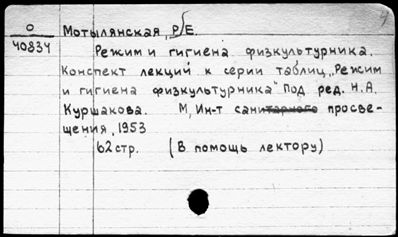 О
40834
Мотылянская, Р.Е.
Режим и гигиена физкультурника.
Конспект лекций к серии таблиц „Режим
и гигиена физкультурника" Под ред. Н.А.
Куршакова. М, Ин-т санитарного просве-
щения, 1953
62 стр. (В помощь лектору)